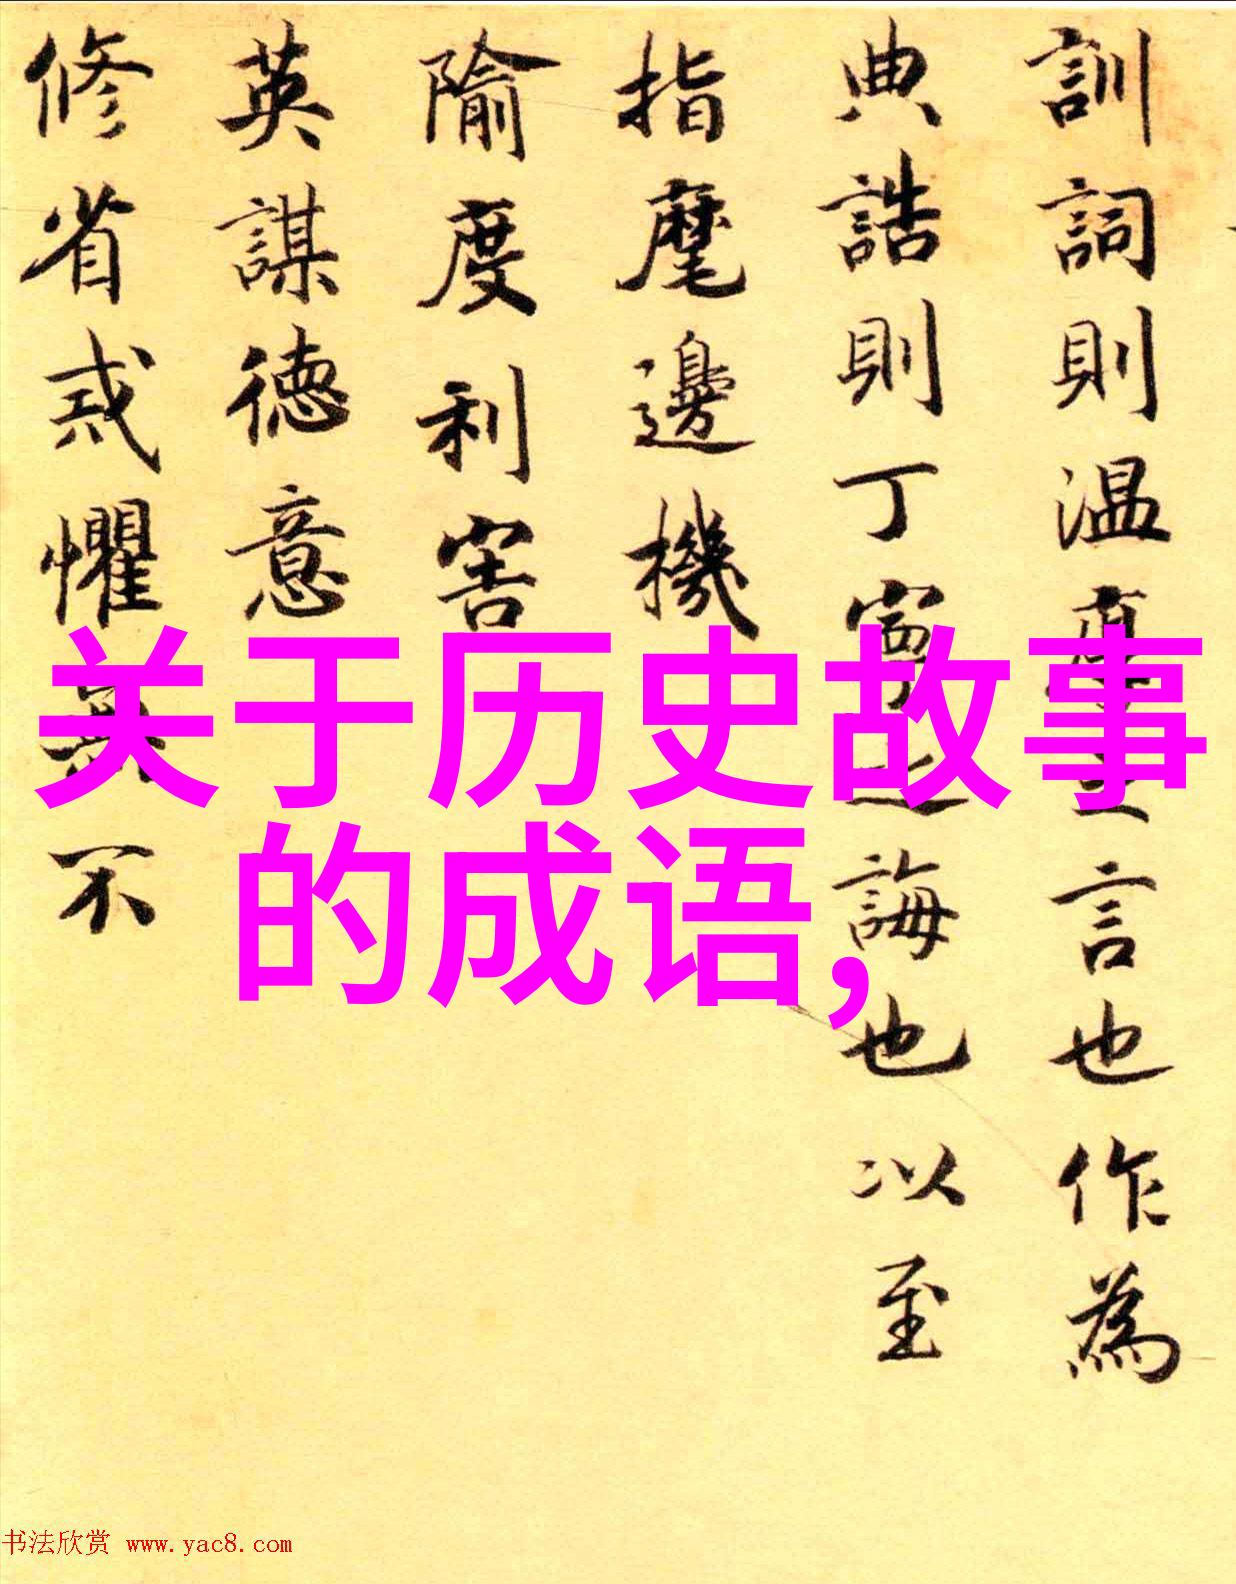 訓詞則温之言也作為
典誥則丁寧之誨也以至
指麾邊機
隃度利害
英謀徳意
修省戒懼無不
关于历史故事
的成语,
书法欣赏 www.yac8.com